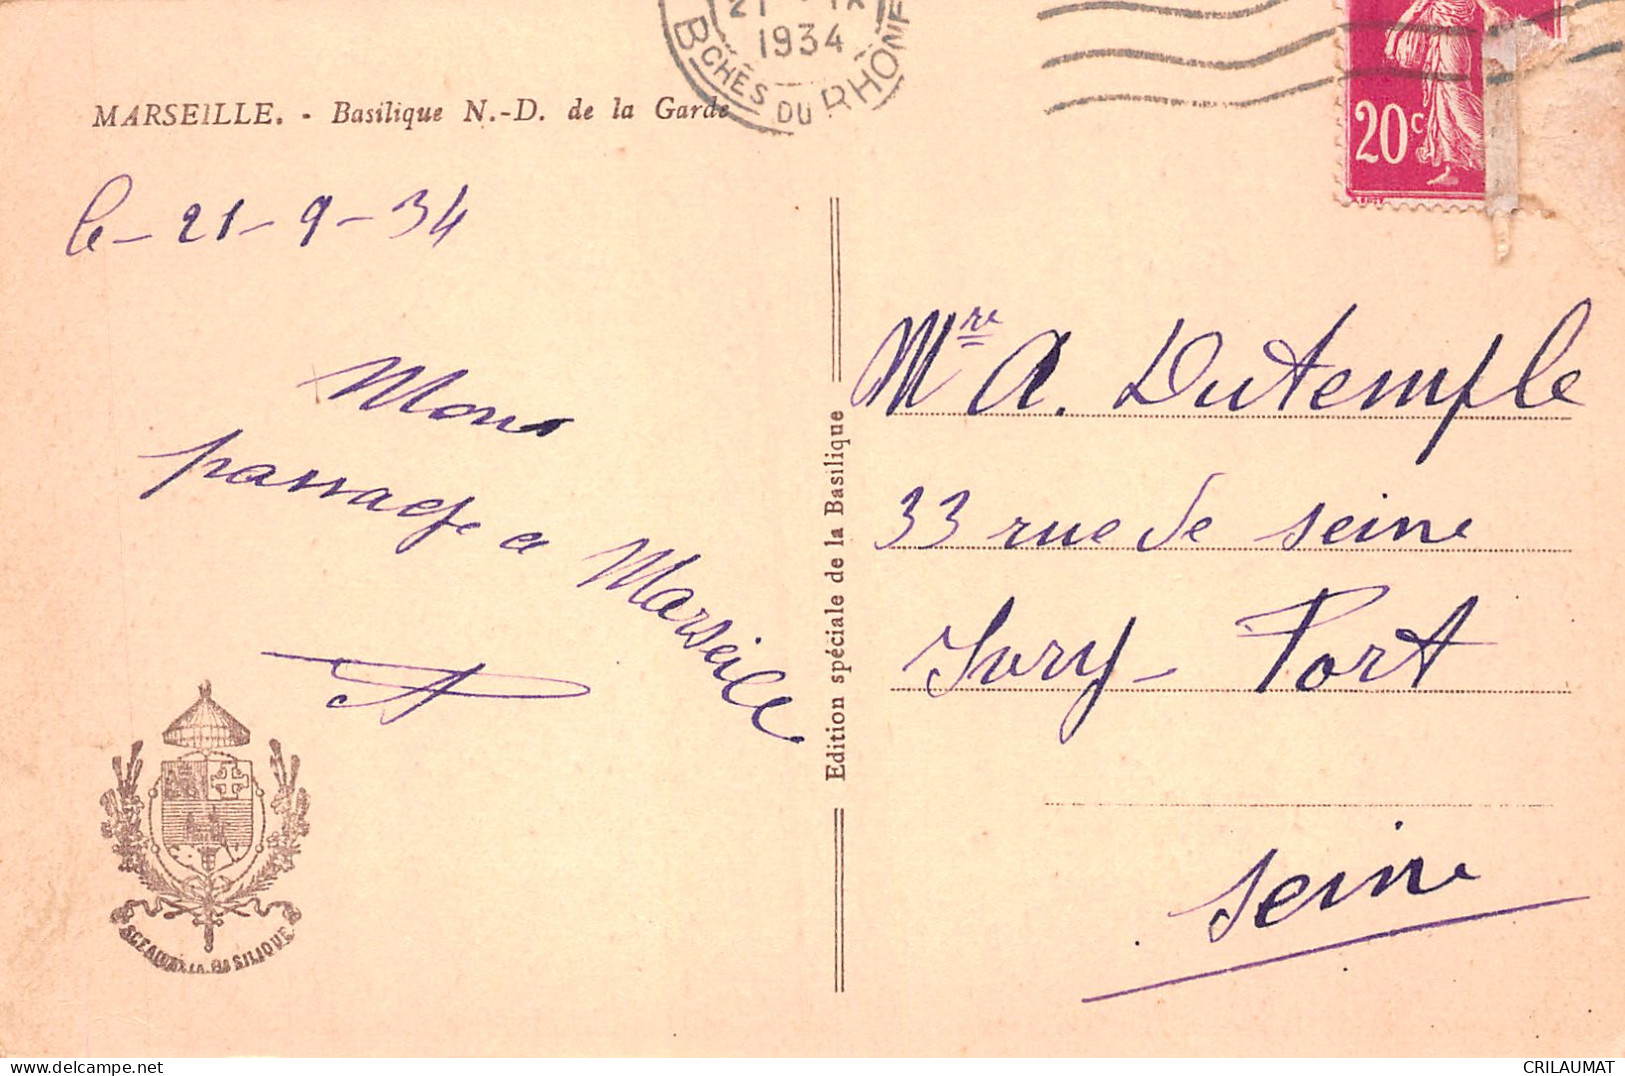 21 IX
1934
BCHES DU RHONE
20c
MARSEILLE. - Basilique N.-D. de la Garde
le - 21 - 9 - 34
Mons
passage a Marseille
Edition spéciale de la Basilique
SCEAU DE LA BASILIQUE
Mre A. Dutemple
33 rue de Seine
Ivry - Port
Seine
CRILAUMAT